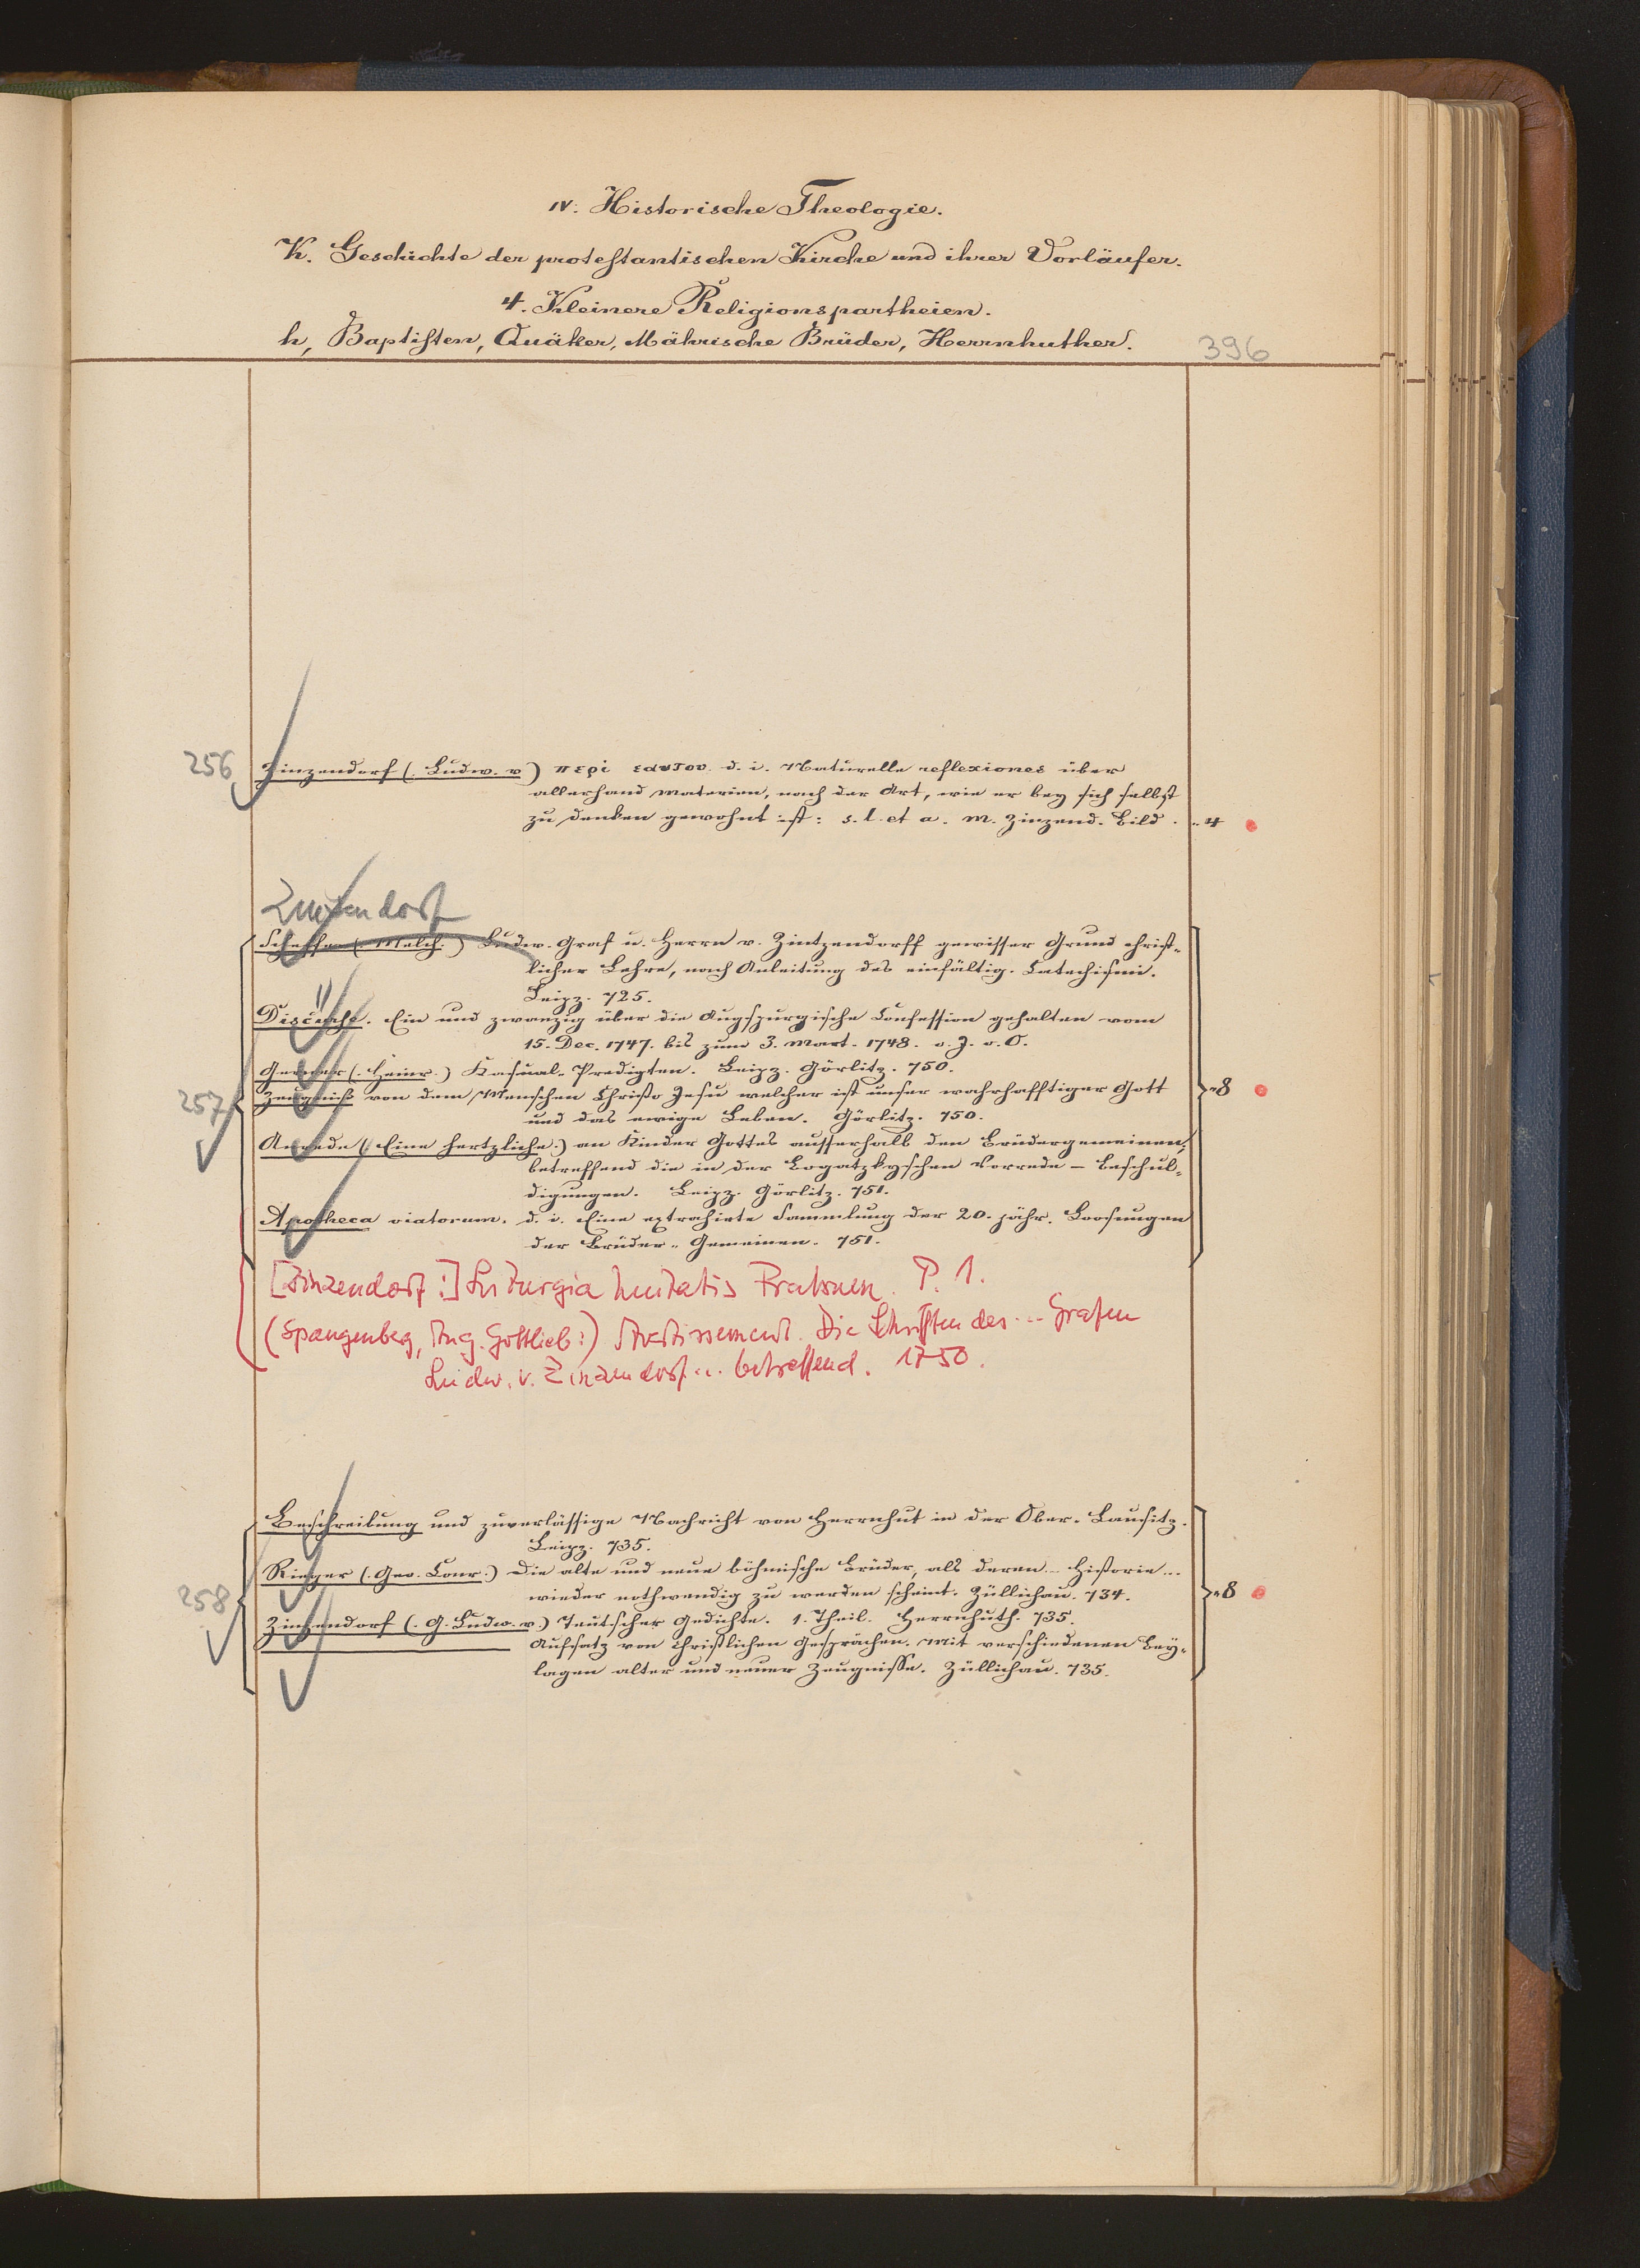 IV. Historische Theologie.
K. Geschichte der protestantischen Kirche und ihrer Vorläufer.
4. Kleinere Religionspartheien.
h, Baptisten, Quäker, Mährische Brüder, Herrnhuther.
396
256 Zinzendorf (. Ludw. v) περὶ εαυτου. d. i. Naturelle reflexiones über
allerhand Materien, nach der Art, wie er bey sich selbst
zu denken gewohnt ist: s. l. et a. m. Zinzend. Bild. „ 4
Zinzendorf
Scheffer (. Melch.) Ludw. Graf u. Herrn v. Zintzendorff gewisser Grund christ-
licher Lehre, nach Anleitung des einfältig. Catechismi.
Leipz. 725.
Discurse. Ein und zwanzug über die Augspurgische Confession gehalten vom
15. Dec. 1747. bis zum 3. Mart. 1748. o. J. o. O.
(. Heinr.) Kasual-Predigten. Leipz. Görlitz. 750.
257 Zeugniß von dem Menschen Christo Jesu welcher ist unser wahrhafftiger Gott „ 8
und das ewige Leben. Görlitz. 750.
Anrede (. Eine hertzliche.) an Kinder Gottes ausserhalb den Brüdergemeinen,
betreffend die in der Bogatzkyschen Vorrede – Beschul-
digungen. Leipz. Görlitz. 751.
Apotheca viatorum. d. i. Eine extrahirte Sammlung der 20. jähr. Loosungen
der Brüder-Gemeinen. 751.
[Zinzendorf:] Liturgia Fratrum. P. 1.
(Spangenberg, Aug. Gottlieb:) Avertissement. Die Schriften des ... Grafen
Ludw. v. Zinzendorf ... betreffend. 1750.
Beschreibung und zuverlässige Nachricht von Herrnhut in der Ober-Lausitz.
Leipz. 735.
Rieger (. Geo. Conr.) Die alte und neue böhmische Brüder, als deren ... Historie ...
258 wieder nothwendig zu werden scheint. Züllichau. 734. „ 8
Zinzendorf (. G. Ludw. v.) Teutscher Gedichte. 1. Theil. Herrnhuth. 735.
Aufsatz von christlichen Gesprächen. Mit verschiedenen Bey-
lagen alter und neuer Zeugnisse. Züllichau. 735.